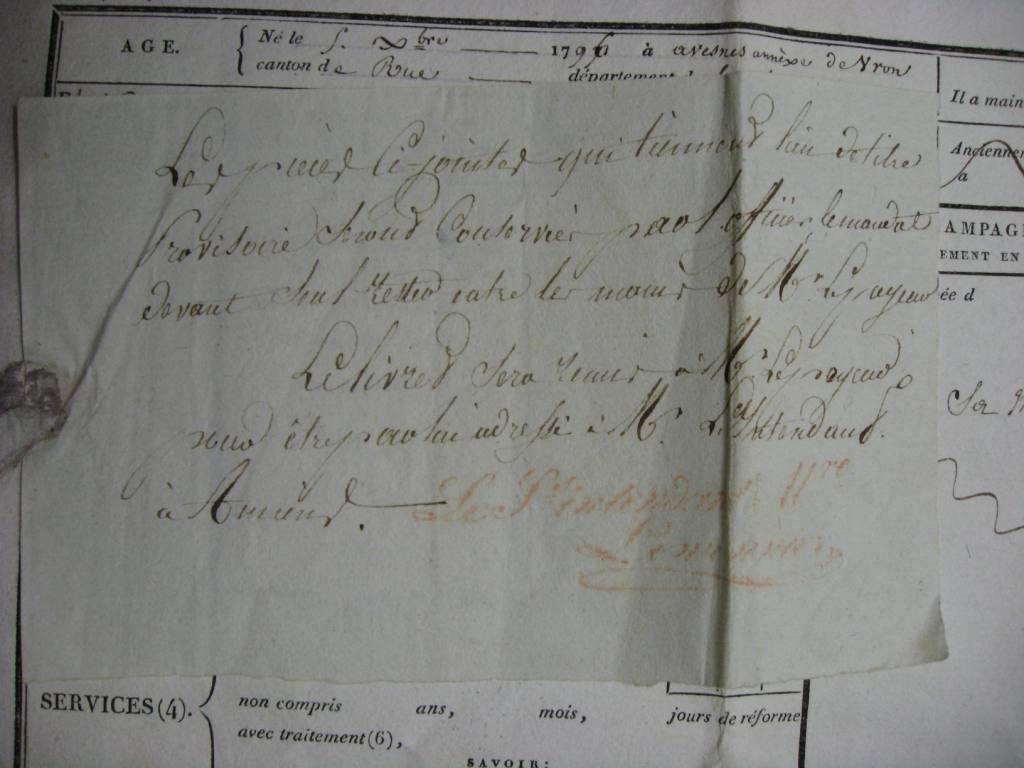 AGE.
Né le 5. Xbre 1791 à avesnes annèxe de Vron
canton de Rue département d
Il a main
Ancienne
a
AMPAG
EMENT EN
ée d
Les pièces Ci-jointes qui tiennent lieu de titre
Provisoire Seront Conservées par l'officier, le mandat
devant Seul rester entre les mains de Mr. Le payeur
Le livret Sera remis à Mr. Le payeur
pour être par lui adressé à Mr. L'Intendant
à Amiens.
Le Ss intendant Mre
SERVICES (4).
non compris ans, mois, jours de réforme
avec traitement (6),
SAVOIR: